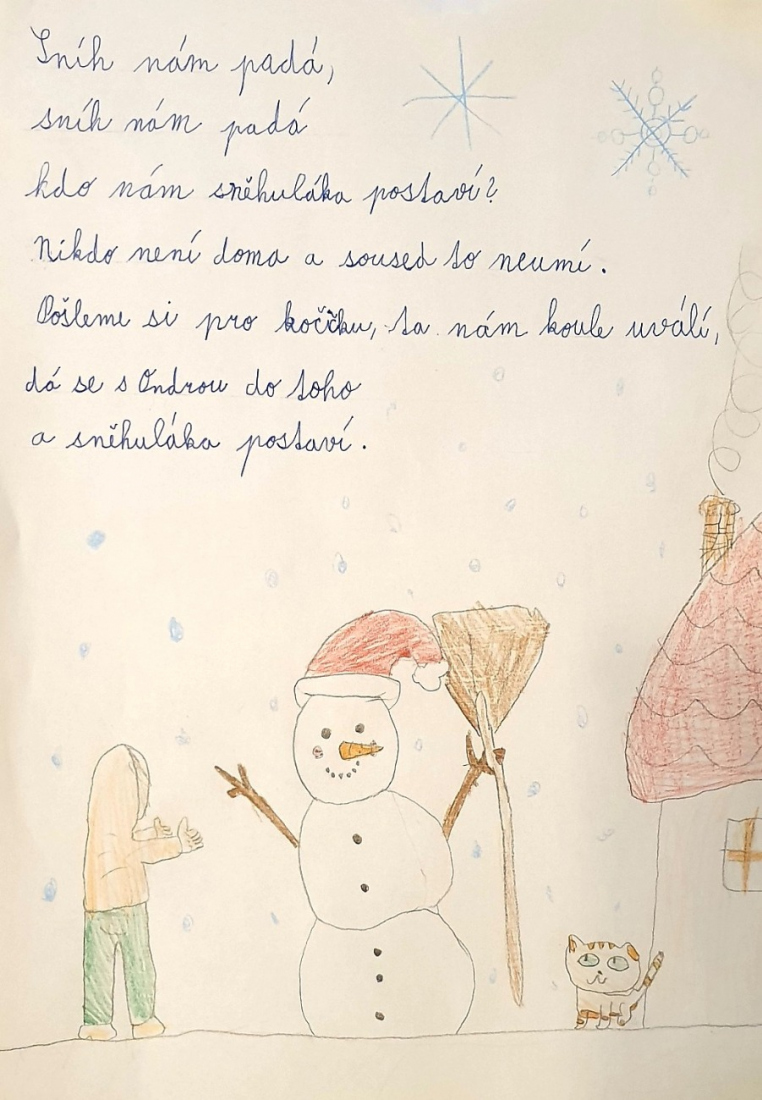 Sníh nám padá,
sníh nám padá
kdo nám sněhuláka postaví?
Nikdo není doma a soused to neumí.
Pošleme si pro kočičku, ta nám koule uválí,
dá se s Ondrou do toho
a sněhuláka postaví.